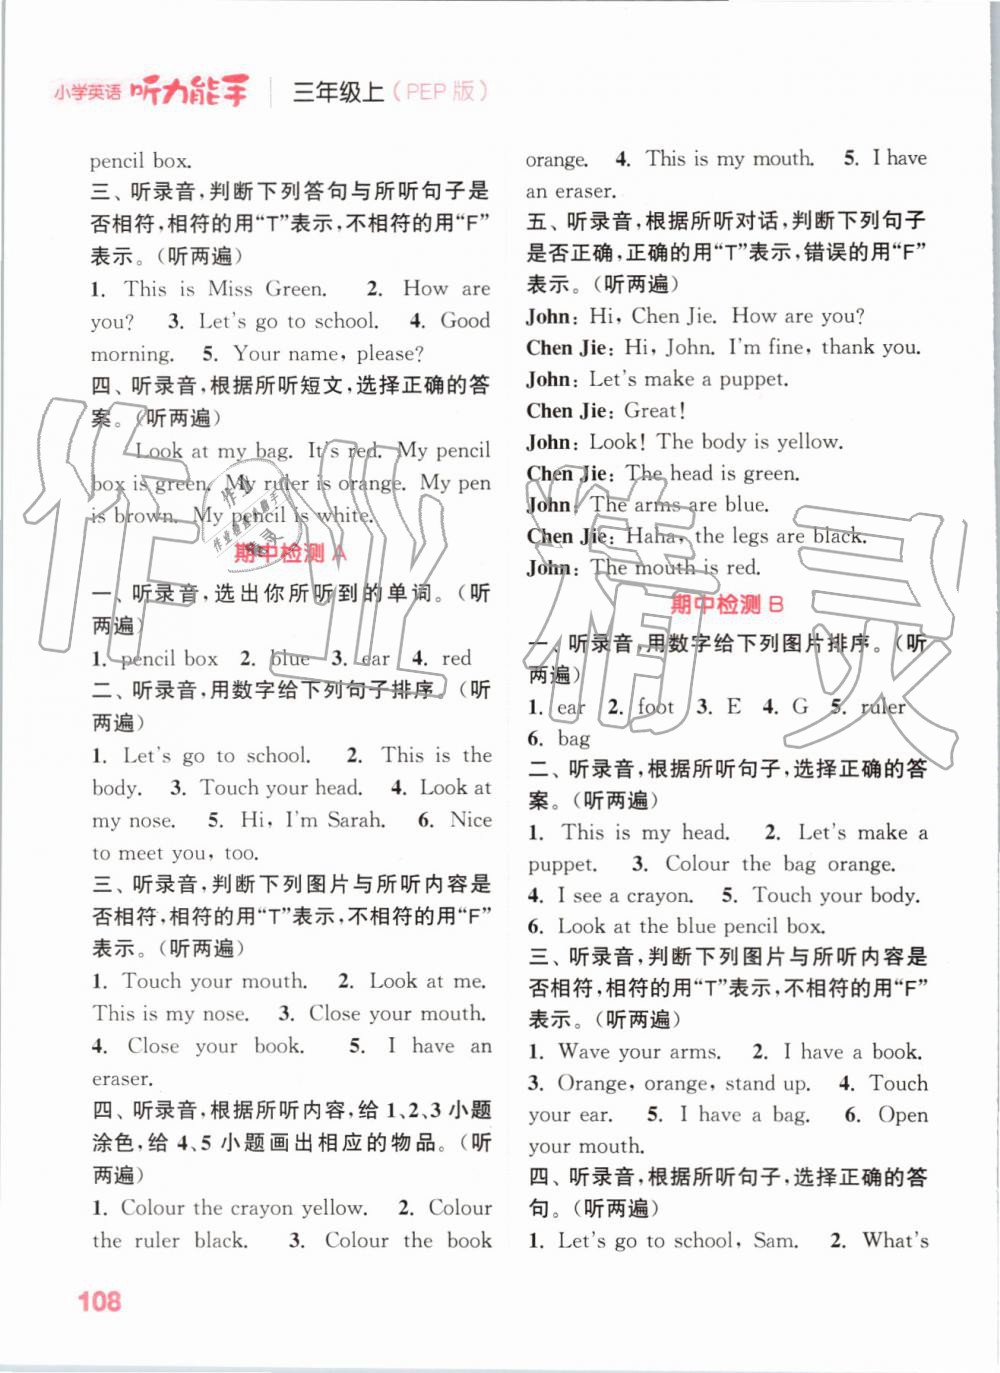 小学英语 听力能手 三年级上(PEP 版)
pencil box.
三、听录音,判断下列答句与所听句子是
否相符,相符的用“T”表示,不相符的用“F”
表示。(听两遍)
1. This is Miss Green. 2. How are
you? 3. Let's go to school. 4. Good
morning. 5. Your name, please?
四、听录音,根据所听短文,选择正确的答
案。(听两遍)
Look at my bag. It's red. My pencil
box is green. My ruler is orange. My pen
is brown. My pencil is white.
期中检测 A
一、听录音,选出你所听到的单词。(听
两遍)
1. pencil box 2. blue 3. ear 4. red
二、听录音,用数字给下列句子排序。(听
两遍)
1. Let's go to school. 2. This is the
body. 3. Touch your head. 4. Look at
my nose. 5. Hi, I'm Sarah. 6. Nice
to meet you, too.
三、听录音,判断下列图片与所听内容是
否相符,相符的用“T”表示,不相符的用“F”
表示。(听两遍)
1. Touch your mouth. 2. Look at me.
This is my nose. 3. Close your mouth.
4. Close your book. 5. I have an
eraser.
四、听录音,根据所听内容,给 1、2、3 小题
涂色,给 4、5 小题画出相应的物品。(听
两遍)
1. Colour the crayon yellow. 2. Colour
the ruler black. 3. Colour the book
orange. 4. This is my mouth. 5. I have
an eraser.
五、听录音,根据所听对话,判断下列句子
是否正确,正确的用“T”表示,错误的用“F”
表示。(听两遍)
John: Hi, Chen Jie. How are you?
Chen Jie: Hi, John. I'm fine, thank you.
John: Let's make a puppet.
Chen Jie: Great!
John: Look! The body is yellow.
Chen Jie: The head is green.
John: The arms are blue.
Chen Jie: Haha, the legs are black.
John: The mouth is red.
期中检测 B
一、听录音,用数字给下列图片排序。(听
两遍)
1. ear 2. foot 3. E 4. G 5. ruler
6. bag
二、听录音,根据所听句子,选择正确的答
案。(听两遍)
1. This is my head. 2. Let's make a
puppet. 3. Colour the bag orange.
4. I see a crayon. 5. Touch your body.
6. Look at the blue pencil box.
三、听录音,判断下列图片与所听内容是
否相符,相符的用“T”表示,不相符的用“F”
表示。(听两遍)
1. Wave your arms. 2. I have a book.
3. Orange, orange, stand up. 4. Touch
your ear. 5. I have a bag. 6. Open
your mouth.
四、听录音,根据所听句子,选择正确的答
句。(听两遍)
1. Let's go to school, Sam. 2. What's
108
作业精灵